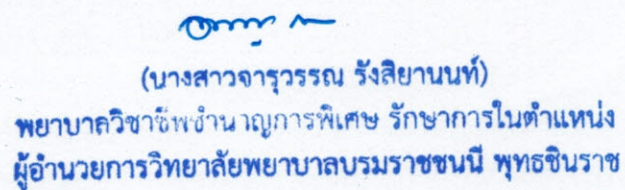 (นางสาวจารุวรรณ รังสิยานนท์)
พยาบาลวิชาชีพชำนาญการพิเศษ รักษาการในตำแหน่ง
ผู้อำนวยการวิทยาลัยพยาบาลบรมราชชนนี พุทธชินราช